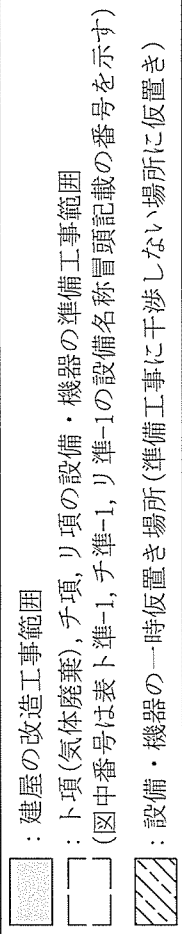 ：建屋の改造工事範囲
：ト項(気体廃棄)，チ項，リ項の設備・機器の準備工事範囲
(図中番号は表ト準-1，チ準-1，リ準-1の設備名称冒頭記載の番号を示す)
：設備・機器の一時仮置き場所(準備工事に干渉しない場所に仮置き)